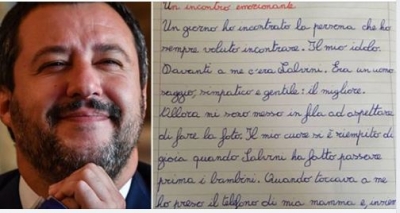 Un incontro emozionante
Un giorno ho incontrato la persona che ho
sempre voluto incontrare. Il mio idolo.
Davanti a me c'era Salvini. Era un uomo
saggio, simpatico e gentile: il migliore.
Allora mi sono messo in fila ad aspettare
di fare la foto. Il mio cuore si è riempito di
gioia quando Salvini ha fatto passare
prima i bambini. Quando toccava a me
ho preso il telefono di mia mamma e,